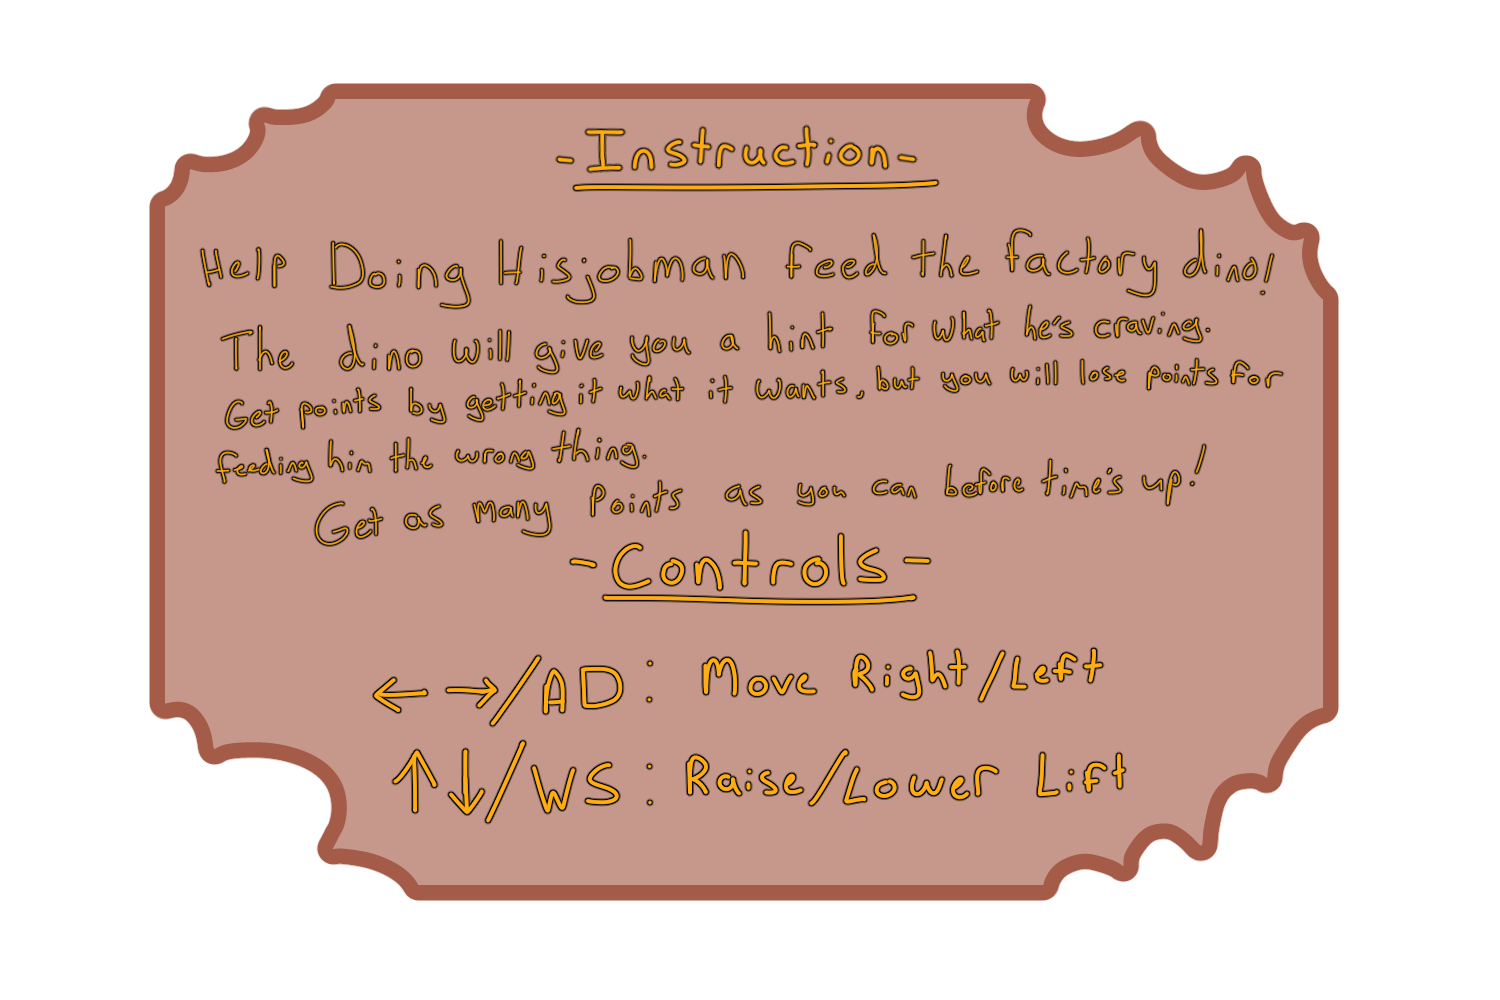 -Instruction-
Help Doing Hisjobman feed the factory dino!
The dino will give you a hint for what he's craving.
Get points by getting it what it wants, but you will lose points for
feeding him the wrong thing.
Get as many Points as you can before time's up!
-Controls-
← →/AD: Move Right/Left
↑↓/WS: Raise/Lower Lift